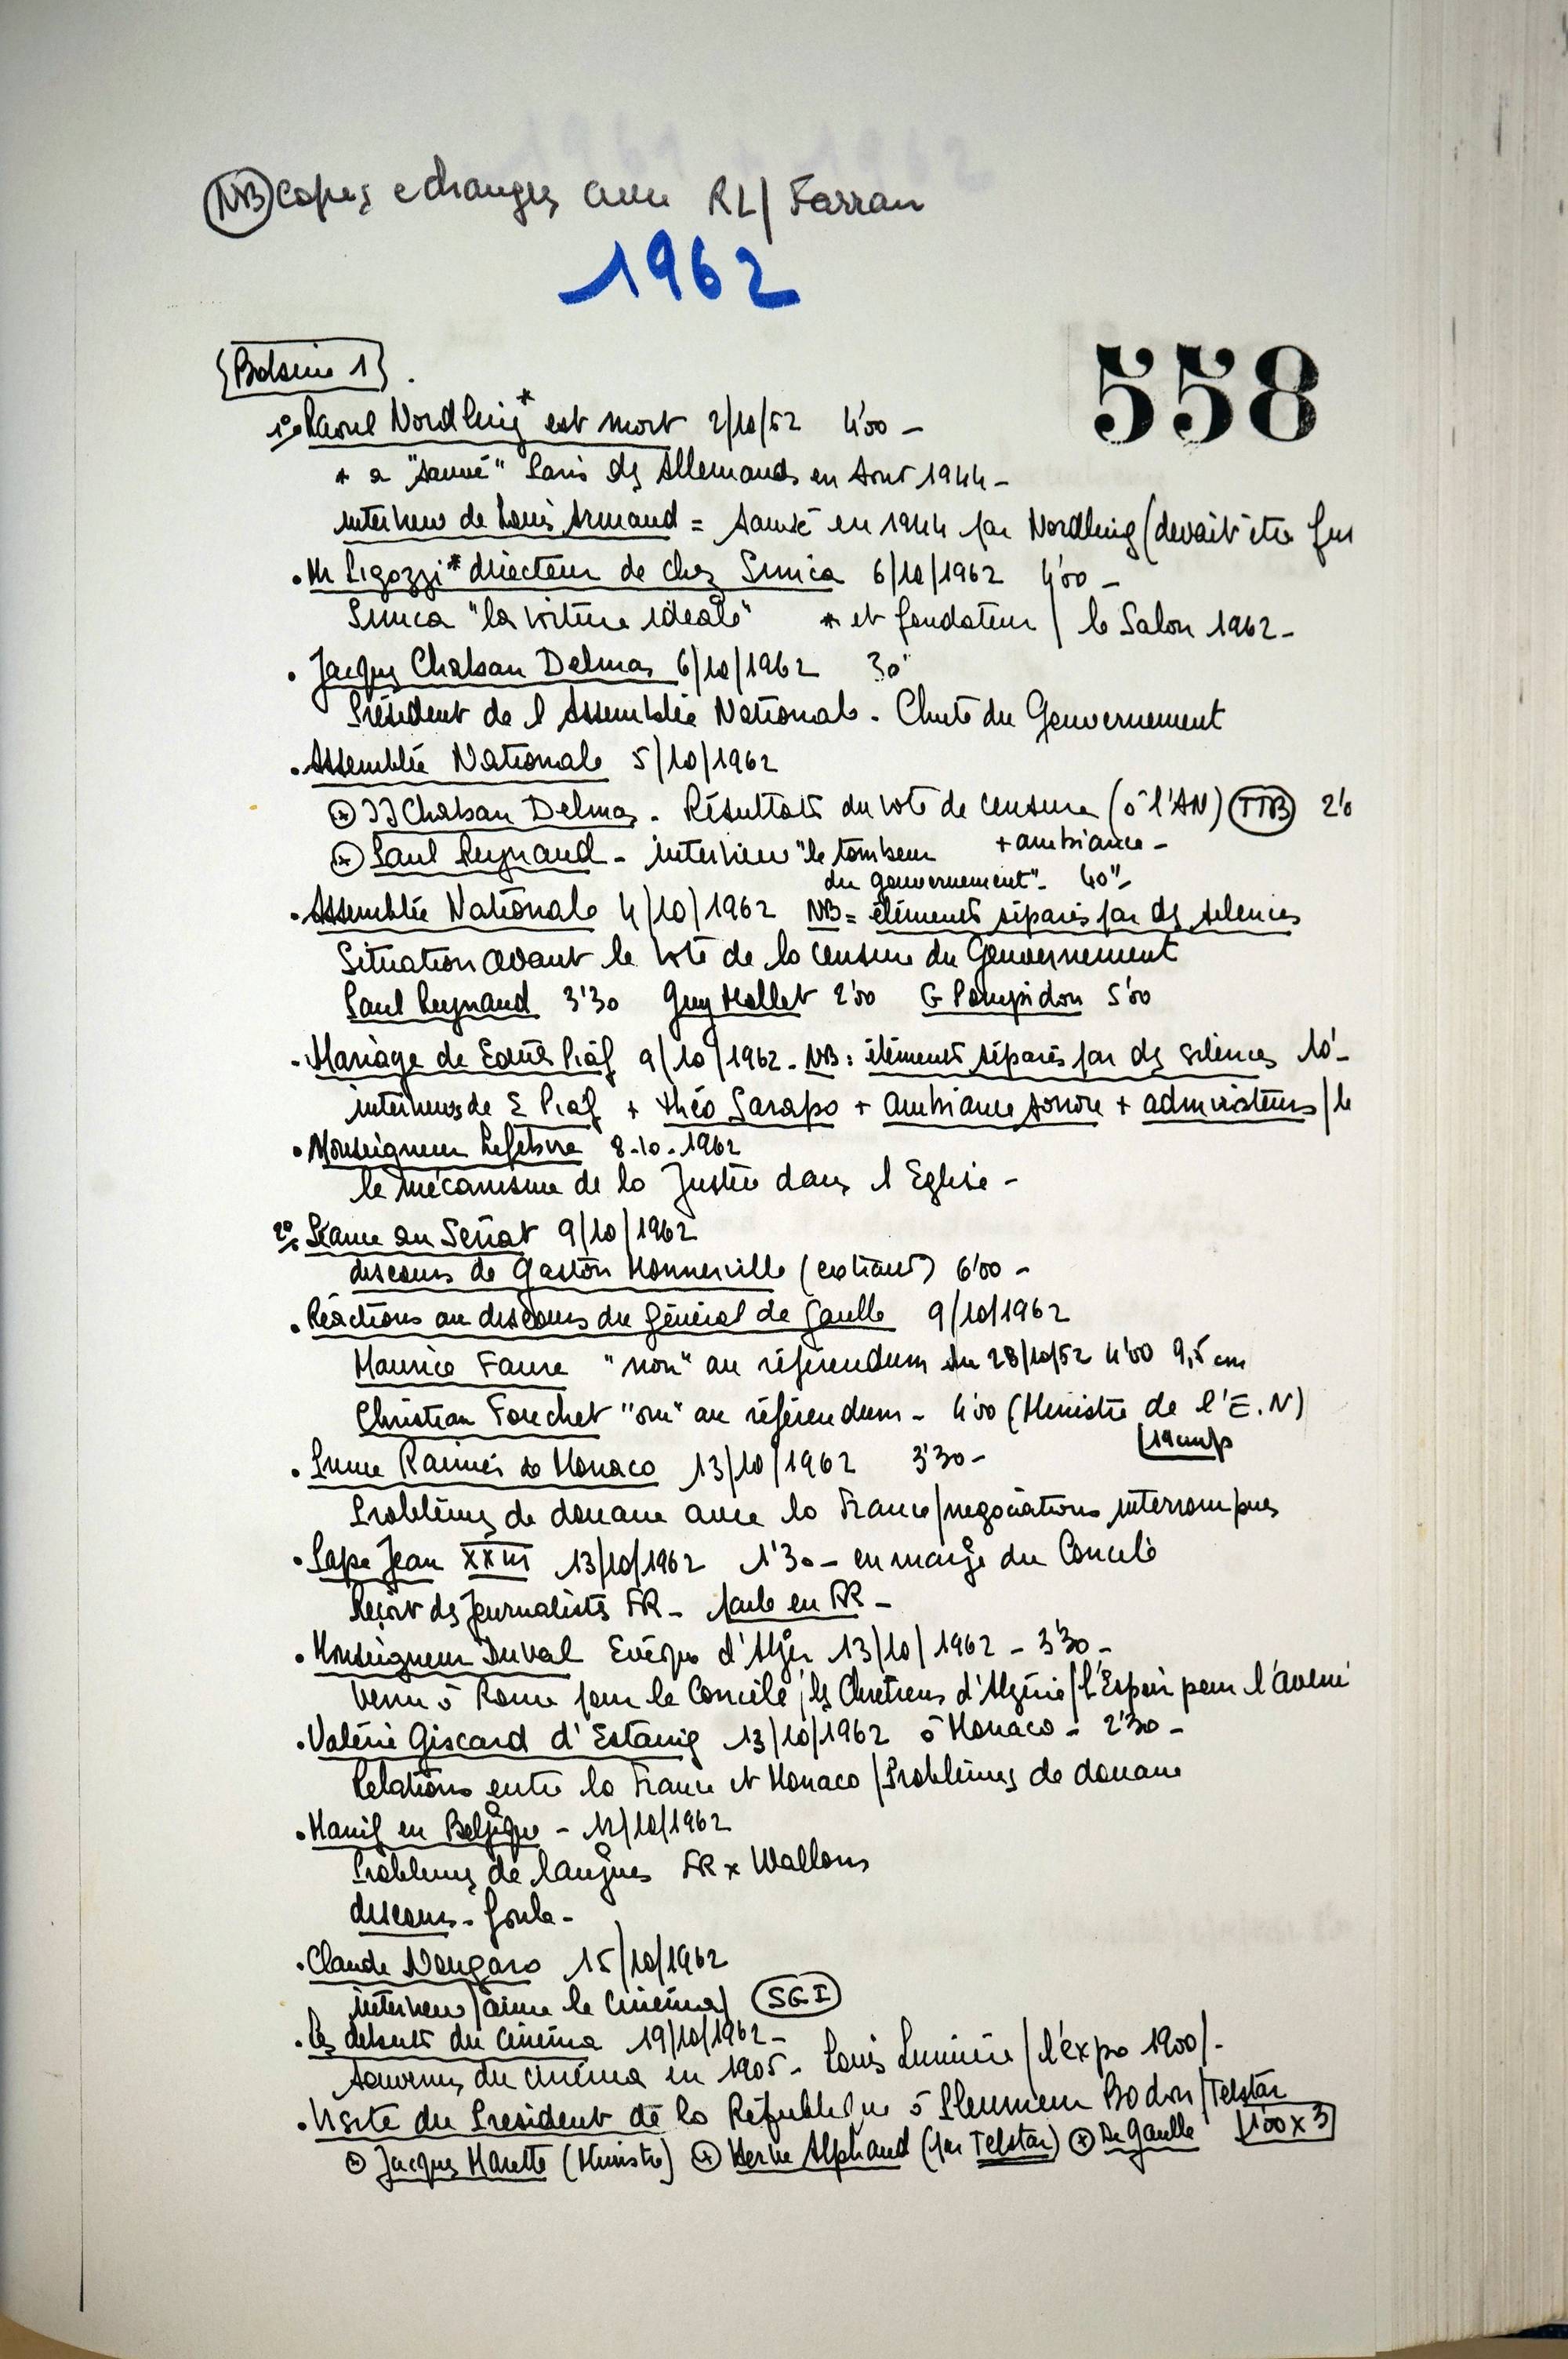 NB copies echanges avec RL/ Farran
1962
558
Bobine 1.
1°/. Raoul Nordling* est mort 2/10/62 4'00 -
* a "sauvé" Paris des Allemands en Août 1944 -
interview de Louis Armand = sauvé en 1944 par Nordling (devait être fus
. Mr Pigozzi* directeur de chez Simca 6/10/1962 4'00 -
Simca "la voiture idéale" * et fondateur / le Salon 1962 -
. Jacques Chaban Delmas 6/10/1962 30"
Président de l'Assemblée Nationale. Chute du Gouvernement
. Assemblée Nationale 5/10/1962
* JJ Chaban Delmas. Résultats du vote de censure (à l'AN) TTB 2'0
+ ambiance -
* Paul Reynaud - interview "le tombeur
du gouvernement" - 40"-
. Assemblée Nationale 4/10/1962 NB = éléments séparés par des silences
Situation avant le vote de la censure du Gouvernement
Paul Reynaud 3'30 Guy Mollet 2'00 G Pompidou 5'00
. Mariage de Edith Piaf 9/10/1962. NB: éléments séparés par des silences 10'-
interviews de E Piaf + Théo Sarapo + ambiance sonore + admirateurs / le
. Monseigneur Lefebvre 8.10.1962
le mécanisme de la Justice dans l'Eglise -
2°/. Séance au Sénat 9/10/1962
discours de Gaston Monnerville (extraits) 6'00 -
. Réactions au discours du Général de Gaulle 9/10/1962
Maurice Faure "non" au référendum du 28/10/62 4'00 9,5 cm
Christian Fouchet "oui" au référendum - 4'00 (Ministre de l'E.N)
19 cm/s
. Prince Rainier de Monaco 13/10/1962 3'30 -
Problèmes de douane avec la France / négociations interrompues
. Pape Jean XXIII 13/10/1962 1'30 - en marge du Concile
Reçoit des Journalistes FR - parle en FR -
. Monseigneur Duval Evêque d'Alger 13/10/1962 - 3'30 -
Venu à Rome pour le Concile / les Chrétiens d'Algérie / l'Espoir pour l'avenir
. Valérie Giscard d'Estaing 13/10/1962 à Monaco - 2'30 -
Relations entre la France et Monaco / Problèmes de douane
. Manif en Belgique - 12/10/1962
Problèmes de langues FR x Wallons
discours - foule -
. Claude Nougaro 15/10/1962
interview / aime le cinéma / SGI
. Les débuts du cinéma 19/10/1962 -
Souvenirs du cinéma en 1905 - Louis Lumière / l'expo 1900/ -
. Visite du Président de la République à Pleumeur Bodou / Telstar
* Jacques Marette (Ministre) * Hervé Alphand (par Telstar) * De Gaulle 1'00 x 3